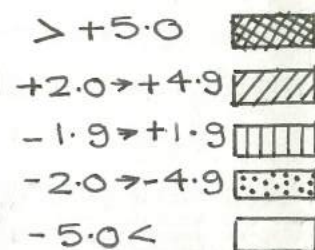 > +5.0
+2.0→+4.9
-1.9→+1.9
-2.0→-4.9
-5.0<